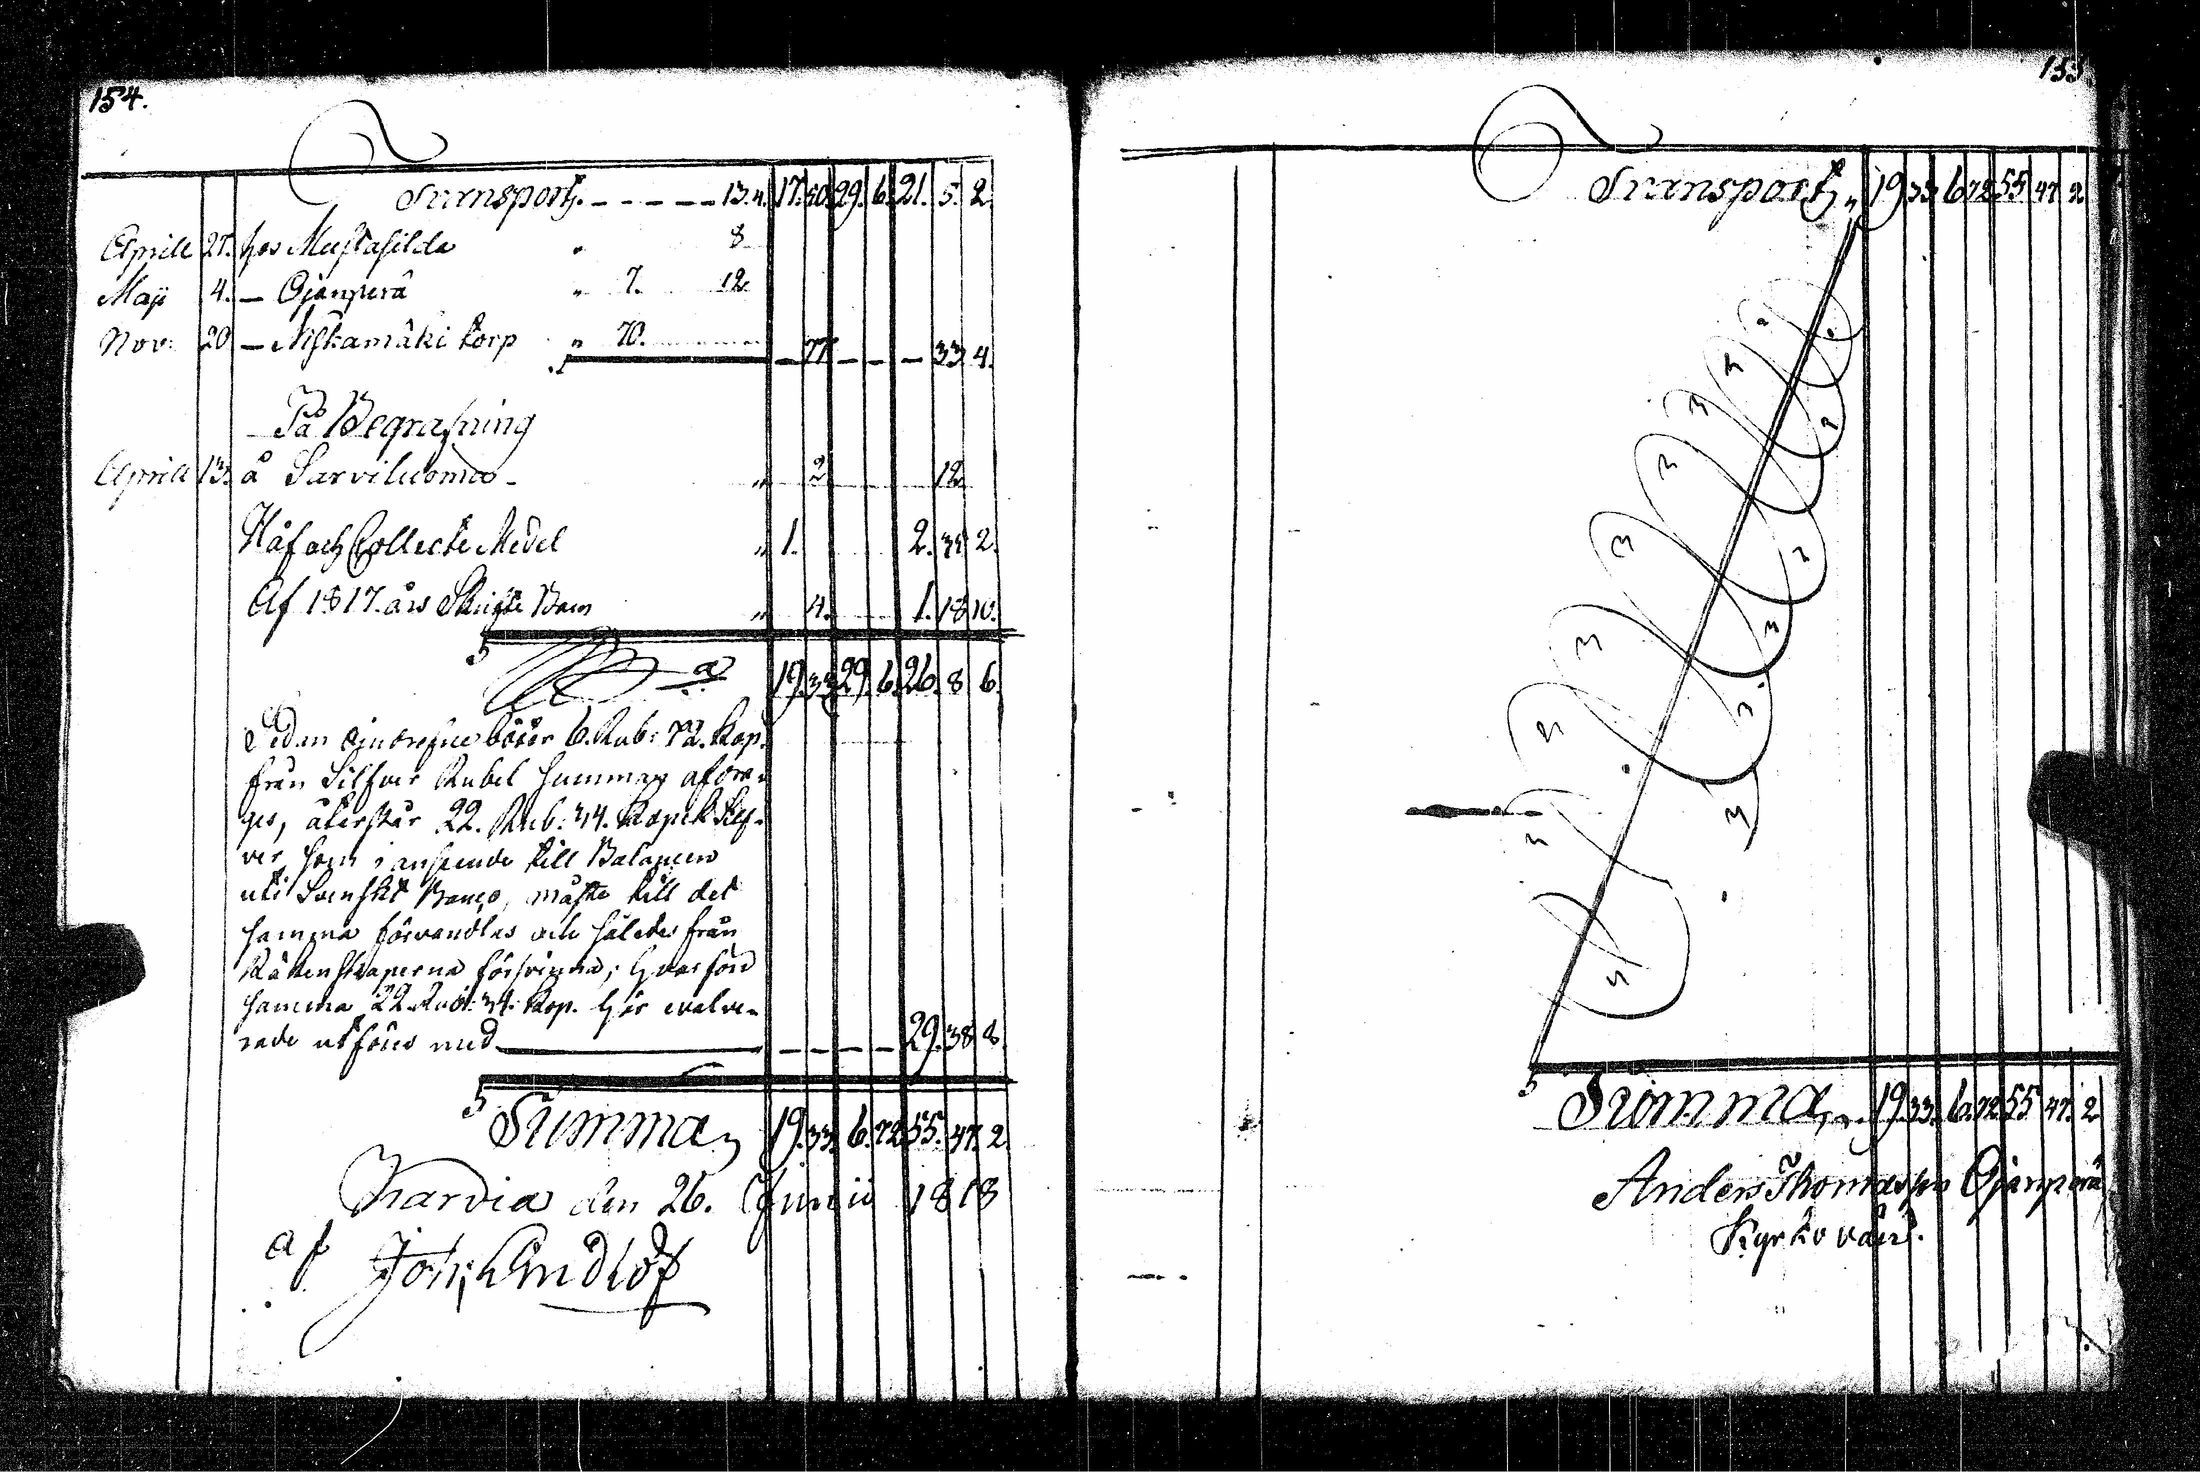 154.
Transport. 13. 4. 17. 50. 29. 6. 21. 5. 2.
Aprill 27. hos Mustasilda " 8
Maji 4. — Ojanperä " 7. 12
Nov: 20 — Niskamäki torp " 70. — 77 — — — 33 4.
På Begrafning
Aprill 13. å Sarviluoma " 2 12
Håf och Collecte Medel " 1. 2. 35 2.
Af 1817. års " 4. 1. 18 10.
19. 33 29. 6. 26. 8 6.
Sedan böter 6. Rub: 72. Kop.
från Silfver Rubel Summan afdra-
ges, återstår 22. Rub: 34. Kopek Silf-
ver, som i anseende till Balancen
uti Svenskt Banco, måste till det
samma förvandlas och således från
Räkenskaperna försvinna; hvarföre
samma 22 Rub: 34. Kop. här evalve-
rade utföres med — — — — 29. 38 8.
Summa 19. 33. 6. 72 55. 47. 2
Karvia den 26. Junii 1818
af Joh: Lindlöf
155
Transport " 19 33 6 72 55 47 2
Summa 19. 33. 6. 72 55 47. 2
Anders Thomasson Ojanperä
Kyrkovärd.